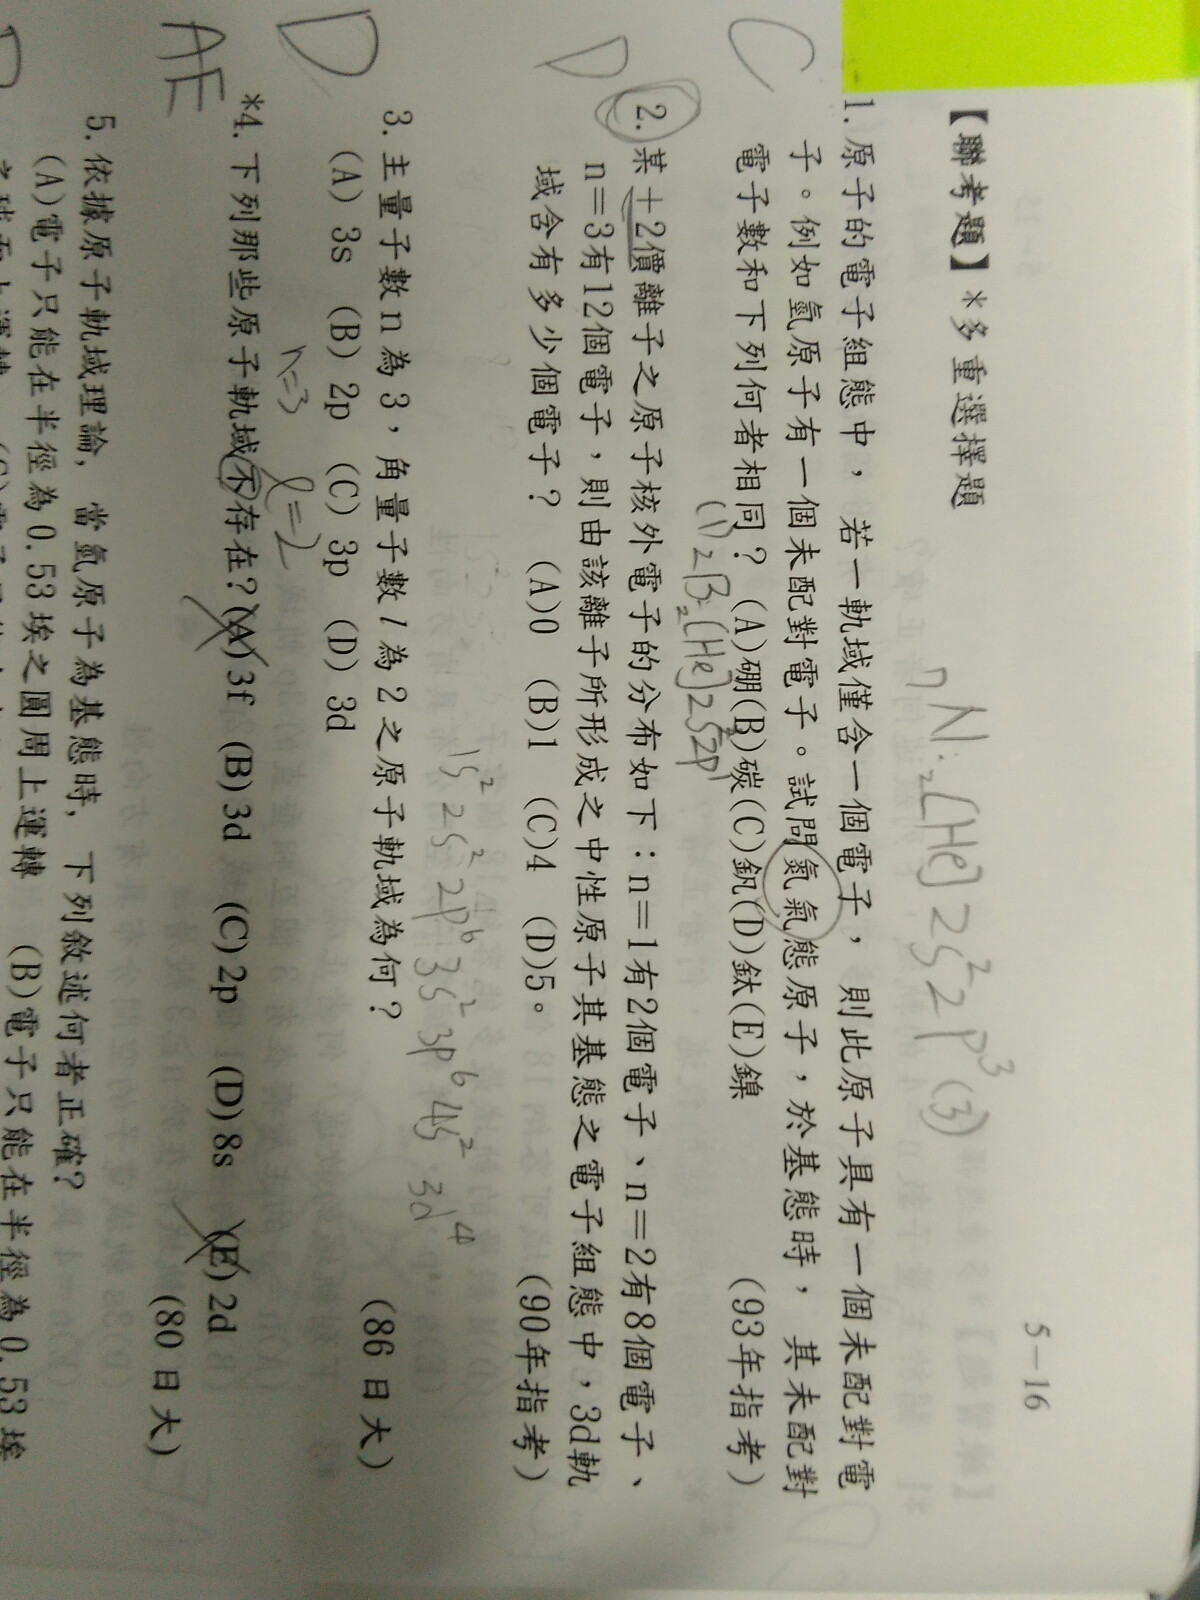 5-16
【聯考題】*多重選擇題
7N:₂[He]2s²2p³(3)
1.原子的電子組態中，若一軌域僅含一個電子，則此原子具有一個未配對電
子。例如氫原子有一個未配對電子。試問氮氣態原子，於基態時，其未配對
電子數和下列何者相同？(A)硼(B)碳(C)釩(D)鈦(E)鎳 (93年指考)
C
(1) 2B:₂[He]2s²2p¹
2.某+2價離子之原子核外電子的分布如下：n=1有2個電子、n=2有8個電子、
n=3有12個電子，則由該離子所形成之中性原子其基態之電子組態中，3d軌
域含有多少個電子？ (A)0 (B)1 (C)4 (D)5。 (90年指考)
D
1s²2s²2p⁶3s²3p⁶4s² 3d⁴
3.主量子數n為3，角量子數l為2之原子軌域為何？
(A) 3s (B) 2p (C) 3p (D) 3d (86日大)
D
n=3 l=2
*4.下列那些原子軌域不存在？(A)3f (B)3d (C)2p (D)8s (E)2d
(80日大)
AE
5.依據原子軌域理論，當氫原子為基態時，下列敘述何者正確？
(A)電子只能在半徑為0.53埃之圓周上運轉 (B)電子只能在半徑為0.53埃
D